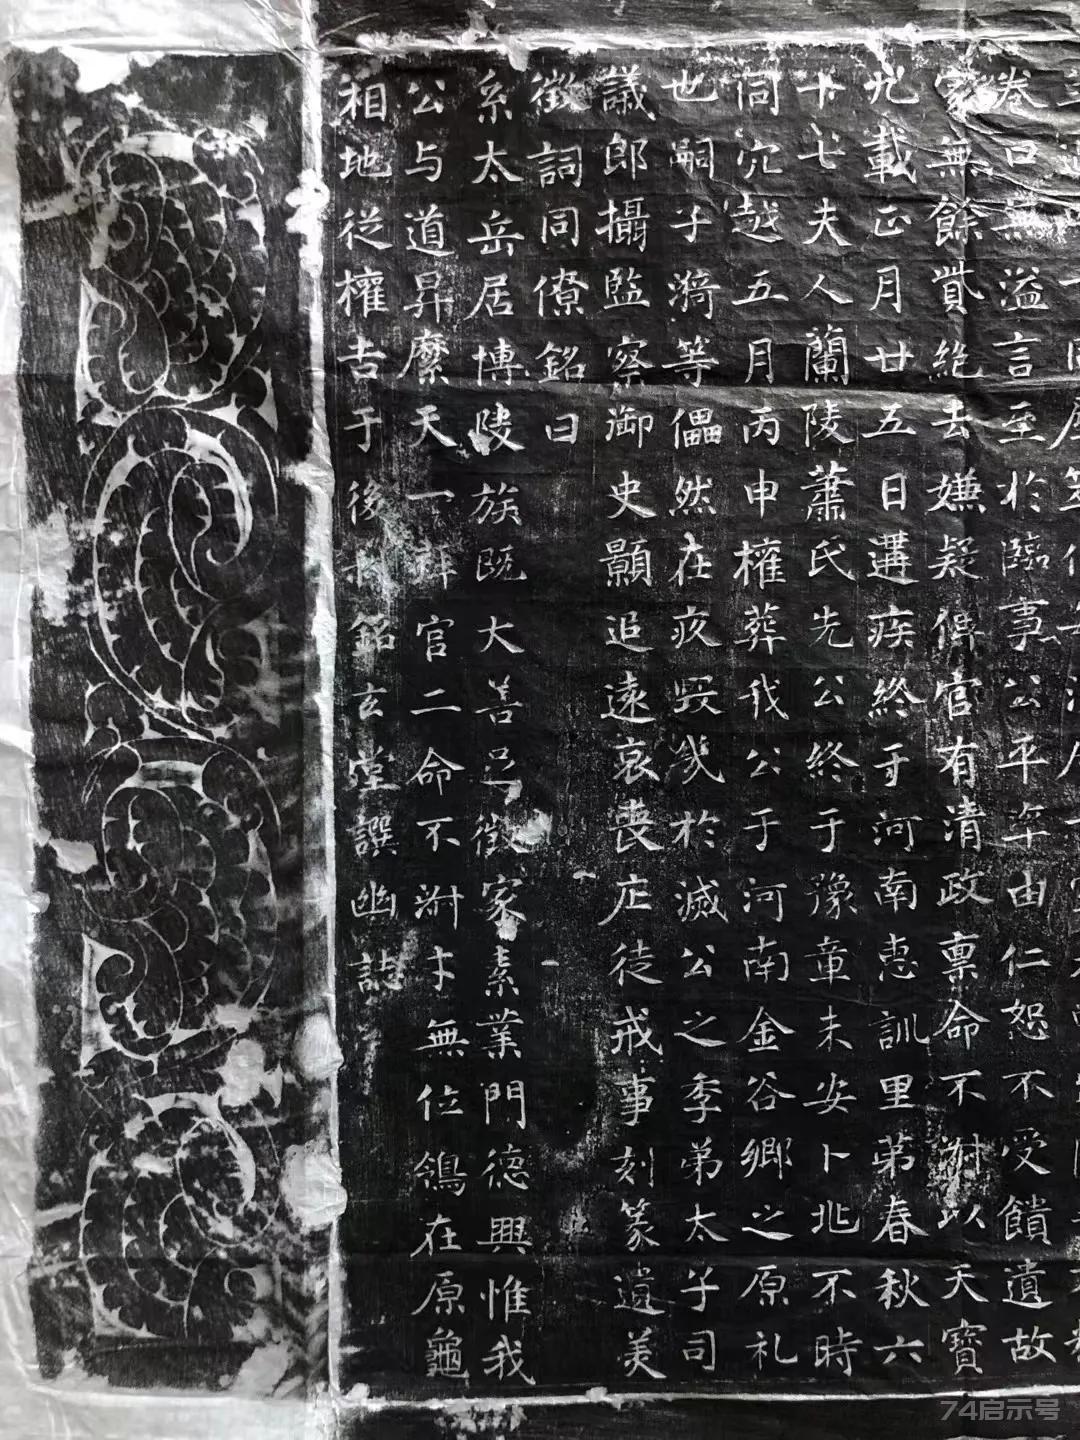 卷口無溢言至於臨事公平率由仁恕不受饋遺故
家無餘貲絶去嫌疑俾官有清政禀命不對以天寶
九載正月廿五日遘疾終于河南惠訓里第春秋六
十七夫人蘭陵蕭氏先公終于豫章未安卜兆不時
同穴越五月丙申權葬我公于河南金谷鄉之原礼
也嗣子漪等儡然在疚毀幾於滅公之季弟太子司
議郎攝監察御史顥追遠哀喪庀徒戒事刻篆遺美
徵詞同僚銘曰
系太岳居博陵族既大善足徵家素業門德興惟我
公与道昇縻天一官二命不淑才無位鴒在原龜
相地從權吉于後銘玄堂譔幽誌
74启示号